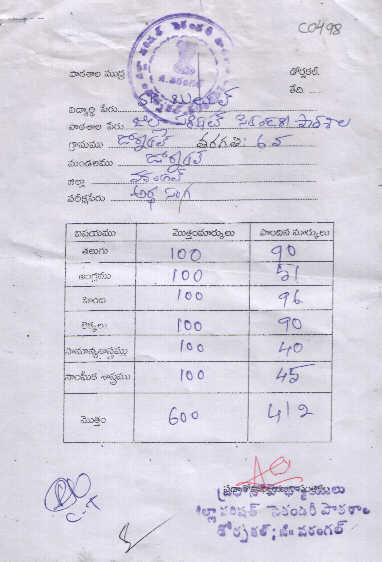 C0498
పాఠశాల ముద్ర
డోర్నకల్.
తేది.
విద్యార్థి పేరు
పాఠశాల పేరు జిల్లా పరిషత్ సెకండరీ పాఠశాల
గ్రామము డోర్నకల్ తరగతి: 6వ
మండలము డోర్నకల్
జిల్లా వరంగల్
పరీక్షపేరు అర్థ సంగ
విషయము మొత్తంమార్కులు పొందిన మార్కులు
తెలుగు 100 90
ఆంగ్లము 100 51
హింది 100 96
లెక్కలు 100 90
సామాన్యశాస్త్రము 100 40
సాంఘీక శాస్త్రము 100 45
మొత్తం 600 412
C.T
జిల్లా పరిషత్ సెకండరీ పాఠశాల
డోర్నకల్; జి॥ వరంగల్